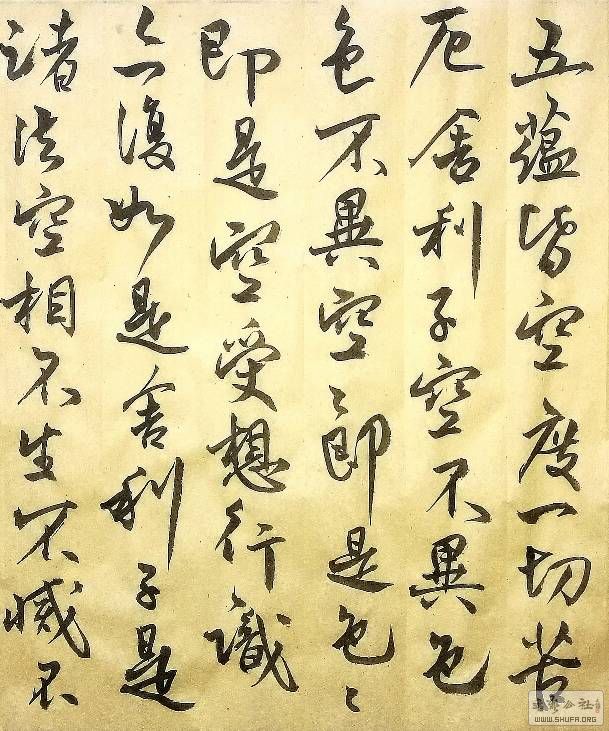 五蘊皆空度一切苦
厄舍利子空不異色
色不異空〻即是色〻
即是空受想行識
亦復如是舍利子是
諸法空相不生不滅不
WWW.SHUFA.ORG